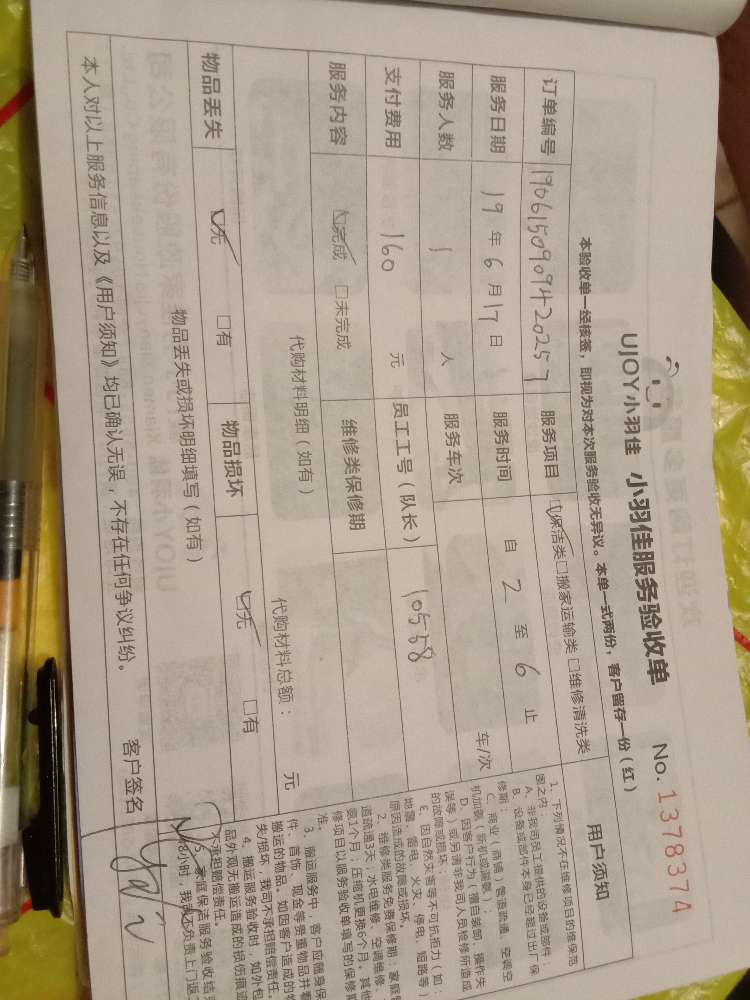 UJOY小羽佳 小羽佳服务验收单 No. 1378374
本验收单一经核签，即视为对本次服务验收无异议。本单一式两份，客户留存一份（红）
订单编号 1906150909420257 服务项目 ☑保洁类□搬家运输类□维修清洗类
服务日期 19年6月17日 服务时间 自 2 至 6 止
服务人数 1 人 服务车次 车/次
支付费用 160 元 员工工号（队长） 10558
服务内容 ☑完成 □未完成 维修类保修期
代购材料明细（如有） 代购材料总额： 元
物品丢失 ☑无 □有 物品损坏 ☑无 □有
物品丢失或损坏明细填写（如有）
本人对以上服务信息以及《用户须知》均已确认无误，不存在任何争议纠纷。 客户签名
用户须知
1、下列情况不在维修项目的维保范
围之内：
A、非我司员工提供的设备或部件；
B、设备或部件本身已经超过出厂保
修期；
C、商业（商铺）管道疏通、空调空
机加氨（新机或漏氨）；
D、因客户行为（擅自装卸、操作失
误等）或另请非我司人员检修所造成
的故障或损坏；
E、因自然灾害等不可抗拒力（如：
地震、雷电、火灾、停电、短路等）
原因造成的故障或损坏。
2、维修类服务免费保修期：家庭
道疏通3天；水电维修、空调维修、
氨1个月；压缩机更换6个月。其他
修项目以服务验收单填写的保修期
准。
3、搬运服务中，客户应随身保
件、首饰、现金等贵重物品并看
搬运的物品。如因客户造成的物
失/损坏，我司不承担赔偿责任。
4、搬运服务验收时，如外包
品外观无搬运造成的损伤痕迹
不承担赔偿责任。
5、家庭保洁服务验收结
48小时，我司不负责上门返